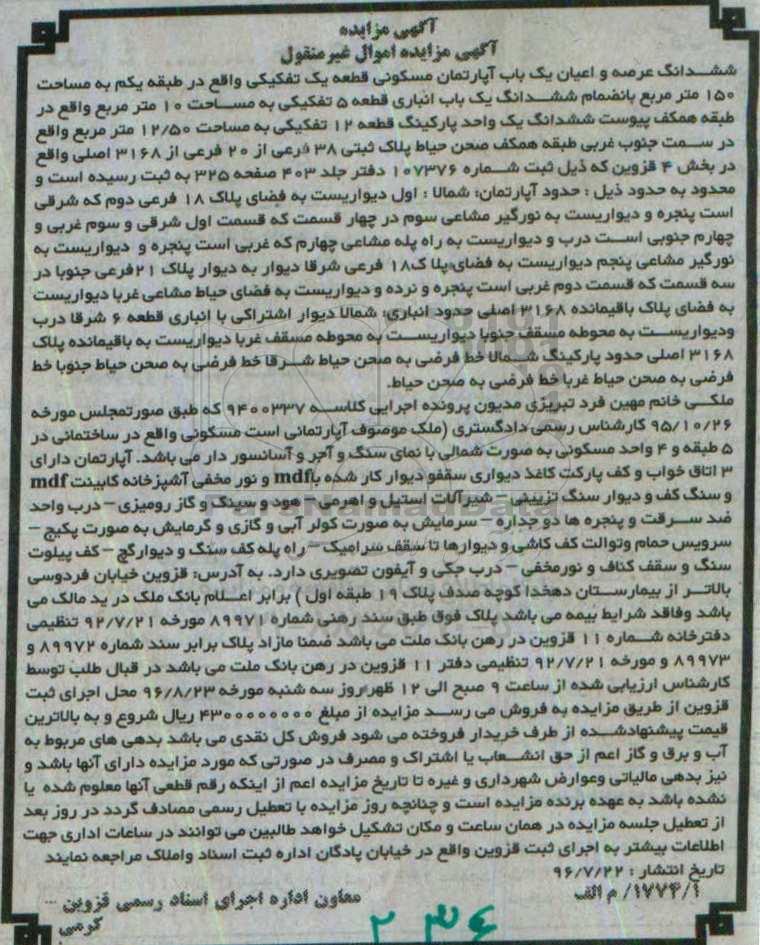 آگهی مزایده
آگهی مزایده اموال غیر منقول
ششدانگ عرصه و اعیان یک باب آپارتمان مسکونی قطعه یک تفکیکی واقع در طبقه یکم به مساحت
۱۵۰ متر مربع بانضمام ششدانگ یک باب انباری قطعه ۵ تفکیکی به مساحت ۱۰ متر مربع واقع در
طبقه همکف پیوست ششدانگ یک واحد پارکینگ قطعه ۱۲ تفکیکی به مساحت ۱۲/۵۰ متر مربع واقع
در سمت جنوب غربی طبقه همکف صحن حیاط پلاک ثبتی ۳۸ فرعی از ۲۰ فرعی از ۳۱۶۸ اصلی واقع
در بخش ۴ قزوین که ذیل ثبت شماره ۱۰۷۳۷۶ دفتر جلد ۴۰۳ صفحه ۳۲۵ به ثبت رسیده است و
محدود به حدود ذیل : حدود آپارتمان: شمالا : اول دیواریست به فضای پلاک ۱۸ فرعی دوم که شرقی
است پنجره و دیواریست به نورگیر مشاعی سوم در چهار قسمت که قسمت اول شرقی و سوم غربی و
چهارم جنوبی است درب و دیواریست به راه پله مشاعی چهارم که غربی است پنجره و دیواریست به
نورگیر مشاعی پنجم دیواریست به فضای پلا ک۱۸ فرعی شرقا دیوار به دیوار پلاک ۲۱فرعی جنوبا در
سه قسمت که قسمت دوم غربی است پنجره و نرده و دیواریست به فضای حیاط مشاعی غربا دیواریست
به فضای پلاک باقیمانده ۳۱۶۸ اصلی حدود انباری: شمالا دیوار اشتراکی با انباری قطعه ۶ شرقا درب
ودیواریست به محوطه مسقف جنوبا دیواریست به محوطه مسقف غربا دیواریست به باقیمانده پلاک
۳۱۶۸ اصلی حدود پارکینگ شمالا خط فرضی به صحن حیاط شرقا خط فرضی به صحن حیاط جنوبا خط
فرضی به صحن حیاط غربا خط فرضی به صحن حیاط.
ملکی خانم مهین فرد تبریزی مدیون پرونده اجرایی کلاسه ۹۴۰۰۳۳۷ که طبق صورتمجلس مورخه
۹۵/۱۰/۲۶ کارشناس رسمی دادگستری (ملک موصوف آپارتمانی است مسکونی واقع در ساختمانی در
۵ طبقه و ۴ واحد مسکونی به صورت شمالی با نمای سنگ و آجر و آسانسور دار می باشد. آپارتمان دارای
۳ اتاق خواب و کف پارکت کاغذ دیواری سقفو دیوار کار شده باmdf و نور مخفی آشپزخانه کابینت mdf
و سنگ کف و دیوار سنگ تزیینی – شیرآلات استیل و اهرمی – هود و سینک و گاز رومیزی – درب واحد
ضد سرقت و پنجره ها دو جداره – سرمایش به صورت کولر آبی و گازی و گرمایش به صورت پکیج –
سرویس حمام وتوالت کف کاشی و دیوارها تا سقف سرامیک – راه پله کف سنگ و دیوارگچ – کف پیلوت
سنگ و سقف کناف و نورمخفی – درب جکی و آیفون تصویری دارد. به آدرس: قزوین خیابان فردوسی
بالاتر از بیمارستان دهخدا کوچه صدف پلاک ۱۹ طبقه اول ) برابر اعلام بانک ملک در ید مالک می
باشد وفاقد شرایط بیمه می باشد پلاک فوق طبق سند رهنی شماره ۸۹۹۷۱ مورخه ۹۲/۷/۲۱ تنظیمی
دفترخانه شماره ۱۱ قزوین در رهن بانک ملت می باشد ضمنا مازاد پلاک برابر سند شماره ۸۹۹۷۲ و
۸۹۹۷۳ و مورخه ۹۲/۷/۲۱ تنظیمی دفتر ۱۱ قزوین در رهن بانک ملت می باشد در قبال طلب توسط
کارشناس ارزیابی شده از ساعت ۹ صبح الی ۱۲ ظهرروز سه شنبه مورخه ۹۶/۸/۲۳ محل اجرای ثبت
قزوین از طریق مزایده به فروش می رسد مزایده از مبلغ ۴۳۰۰۰۰۰۰۰۰ ریال شروع و به بالاترین
قیمت پیشنهادشده از طرف خریدار فروخته می شود فروش کل نقدی می باشد بدهی های مربوط به
آب و برق و گاز اعم از حق انشعاب یا اشتراک و مصرف در صورتی که مورد مزایده دارای آنها باشد و
نیز بدهی مالیاتی وعوارض شهرداری و غیره تا تاریخ مزایده اعم از اینکه رقم قطعی آنها معلوم شده یا
نشده باشد به عهده برنده مزایده است و چنانچه روز مزایده با تعطیل رسمی مصادف گردد در روز بعد
از تعطیل جلسه مزایده در همان ساعت و مکان تشکیل خواهد طالبین می توانند در ساعات اداری جهت
اطلاعات بیشتر به اجرای ثبت قزوین واقع در خیابان پادگان اداره ثبت اسناد واملاک مراجعه نمایند
تاریخ انتشار : ۹۶/۷/۲۲
۱۷۷۴/۱/ م الف
معاون اداره اجرای اسناد رسمی قزوین ...
کرمی
۲ ۳۶